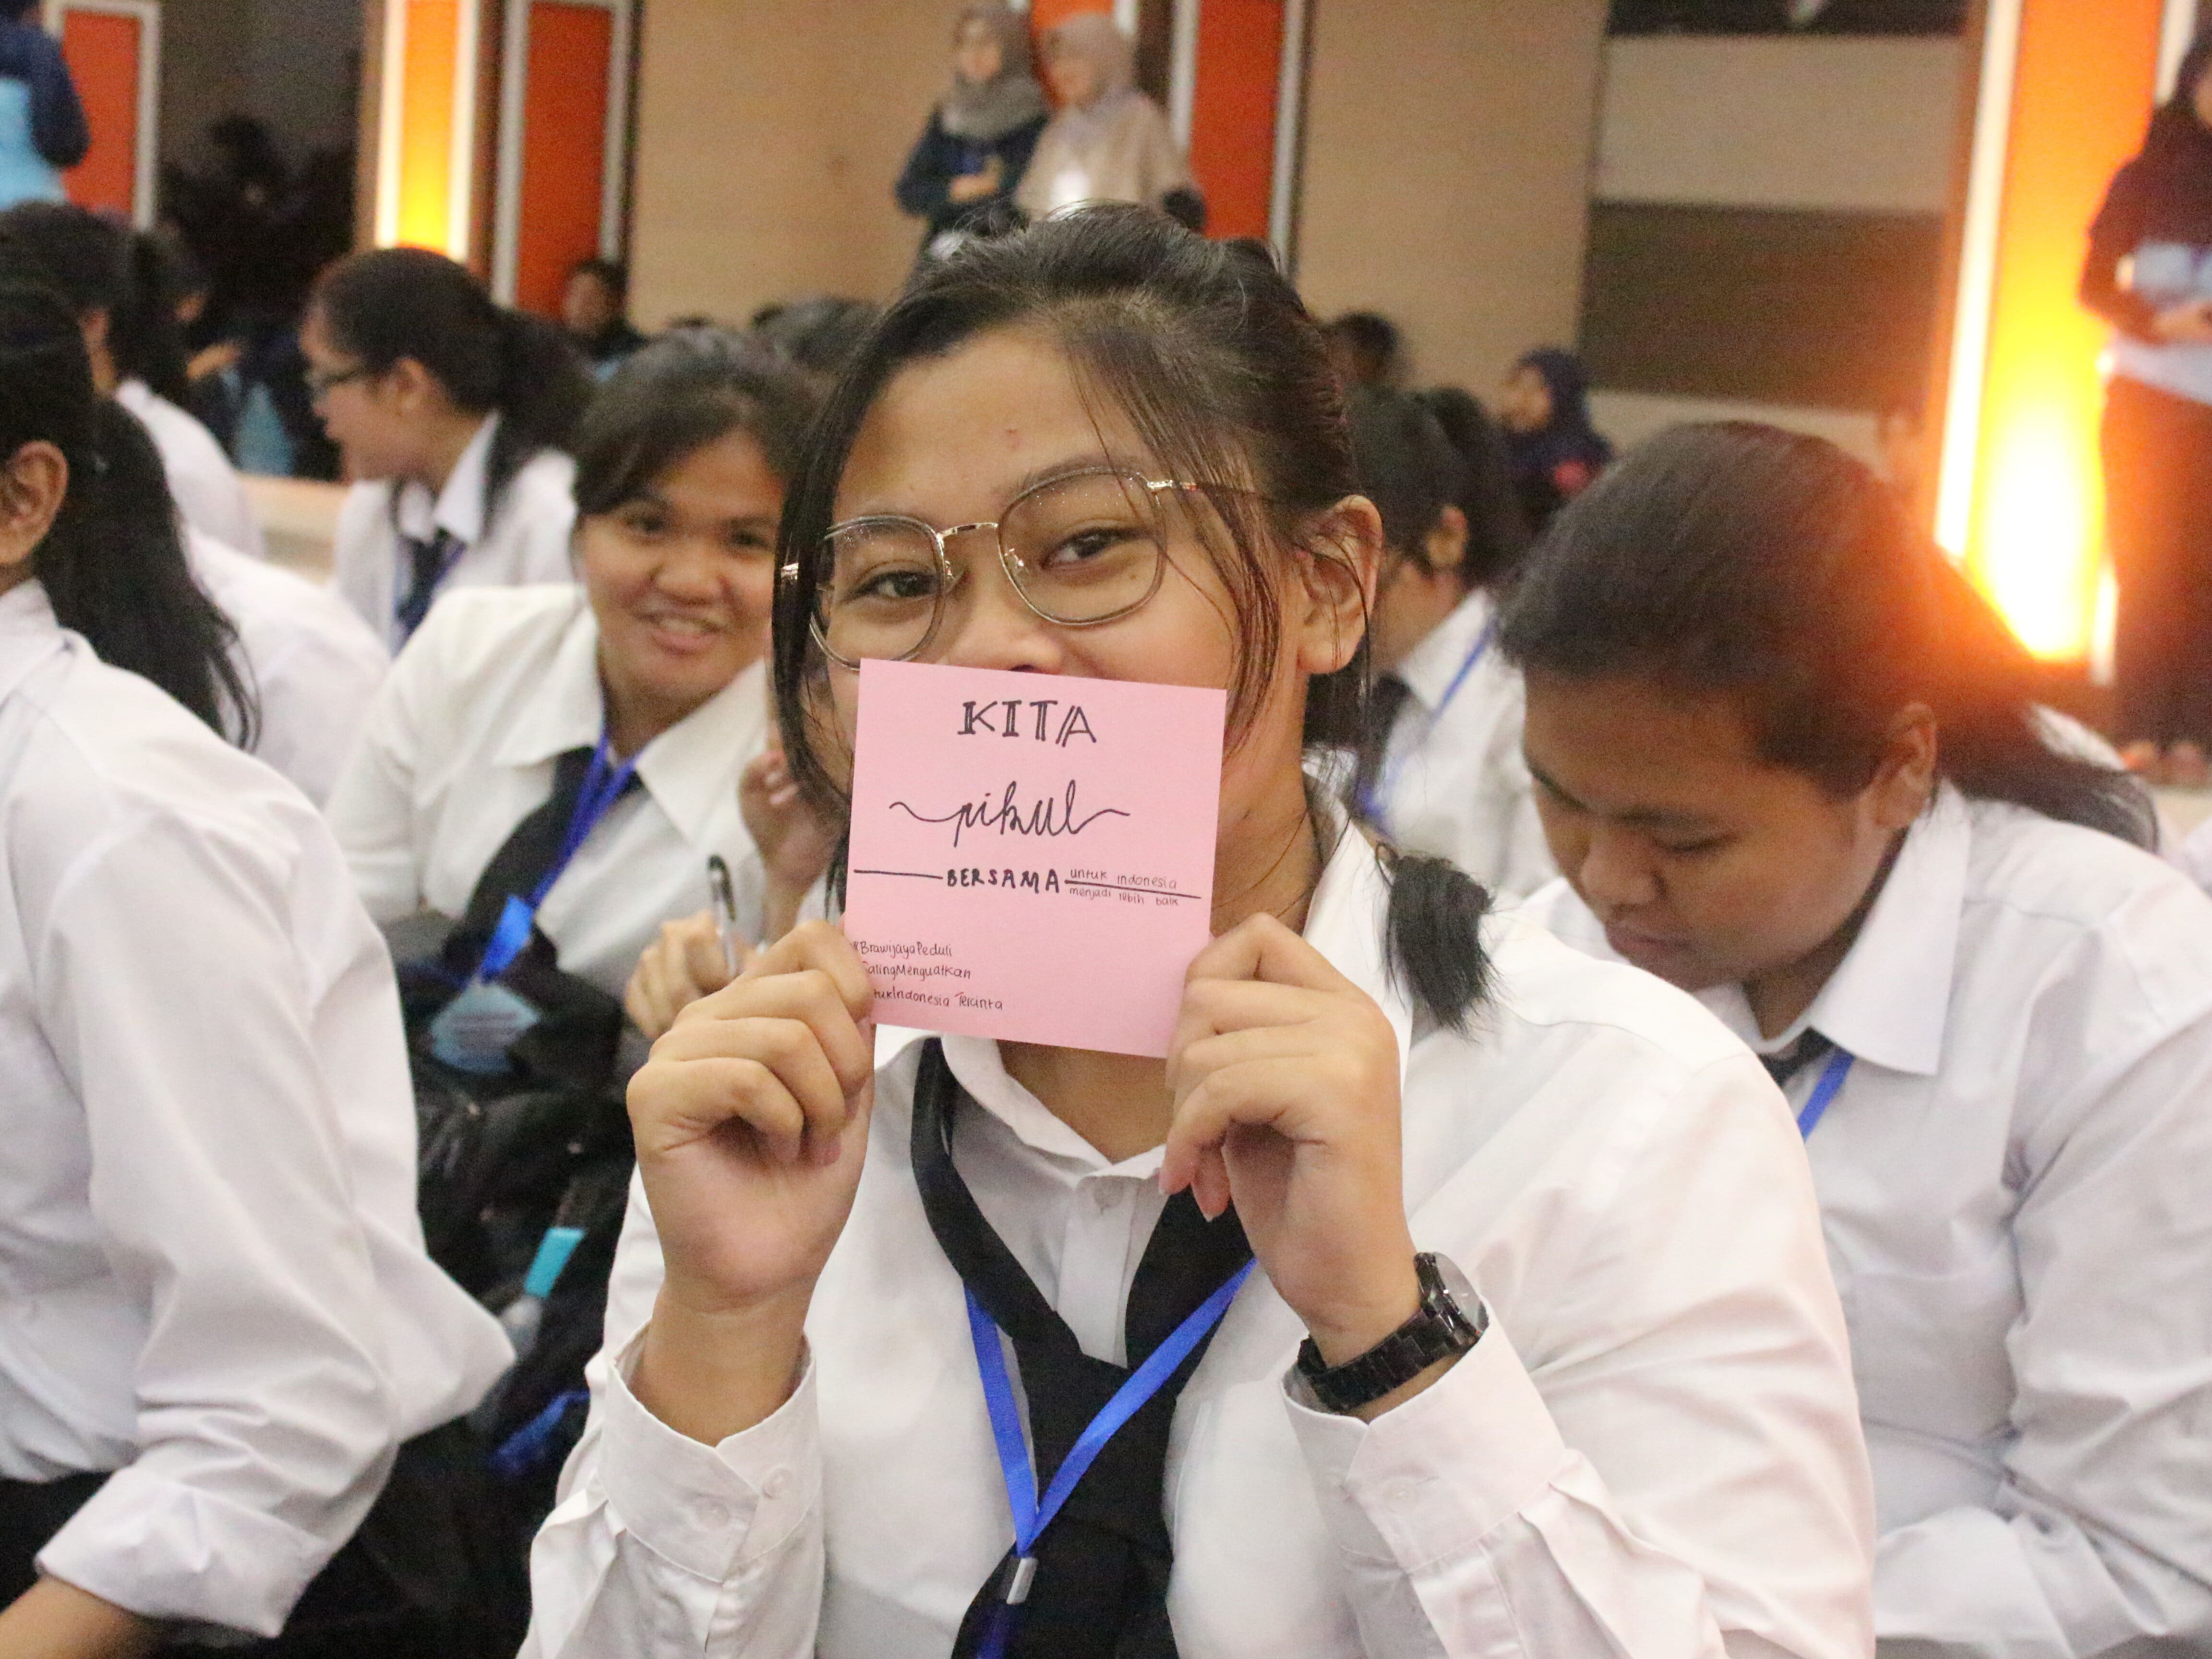 KITA
pikul
BERSAMA untuk indonesia
menjadi lebih baik
#BrawijayaPeduli
SalingMenguatkan
tukIndonesia Tercinta